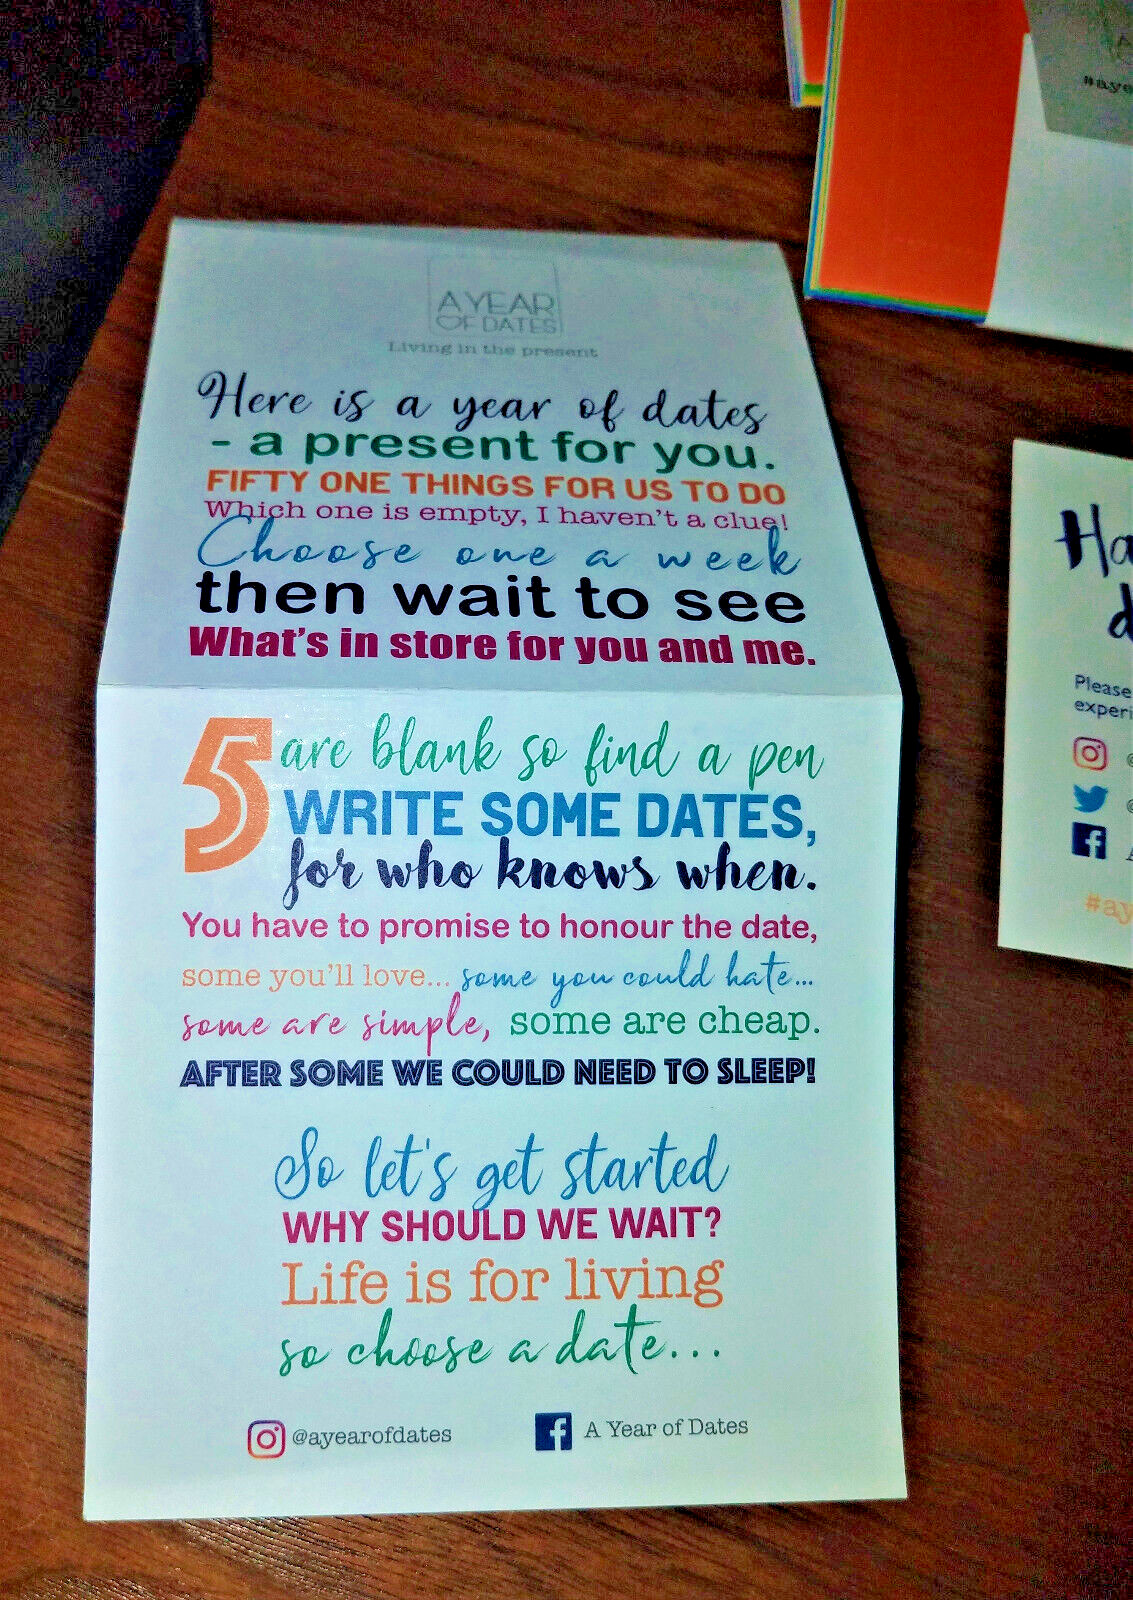 A YEAR
OF DATES
Living in the present
Here is a year of dates
- a present for you.
FIFTY ONE THINGS FOR US TO DO
Which one is empty, I haven't a clue!
Choose one a week
then wait to see
What's in store for you and me.
5 are blank so find a pen
WRITE SOME DATES,
for who knows when.
You have to promise to honour the date,
some you'll love... some you could hate...
some are simple, some are cheap.
AFTER SOME WE COULD NEED TO SLEEP!
So let's get started
WHY SHOULD WE WAIT?
Life is for living
so choose a date...
@ayearofdates
A Year of Dates
Ha
d
Please
experi
#ay
#aye